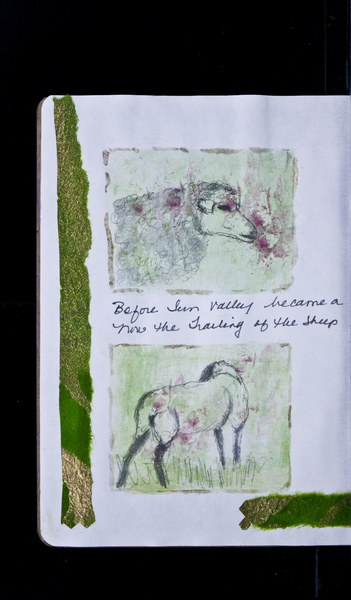 Before Sun Valley became a
now the Trailing of the Sheep